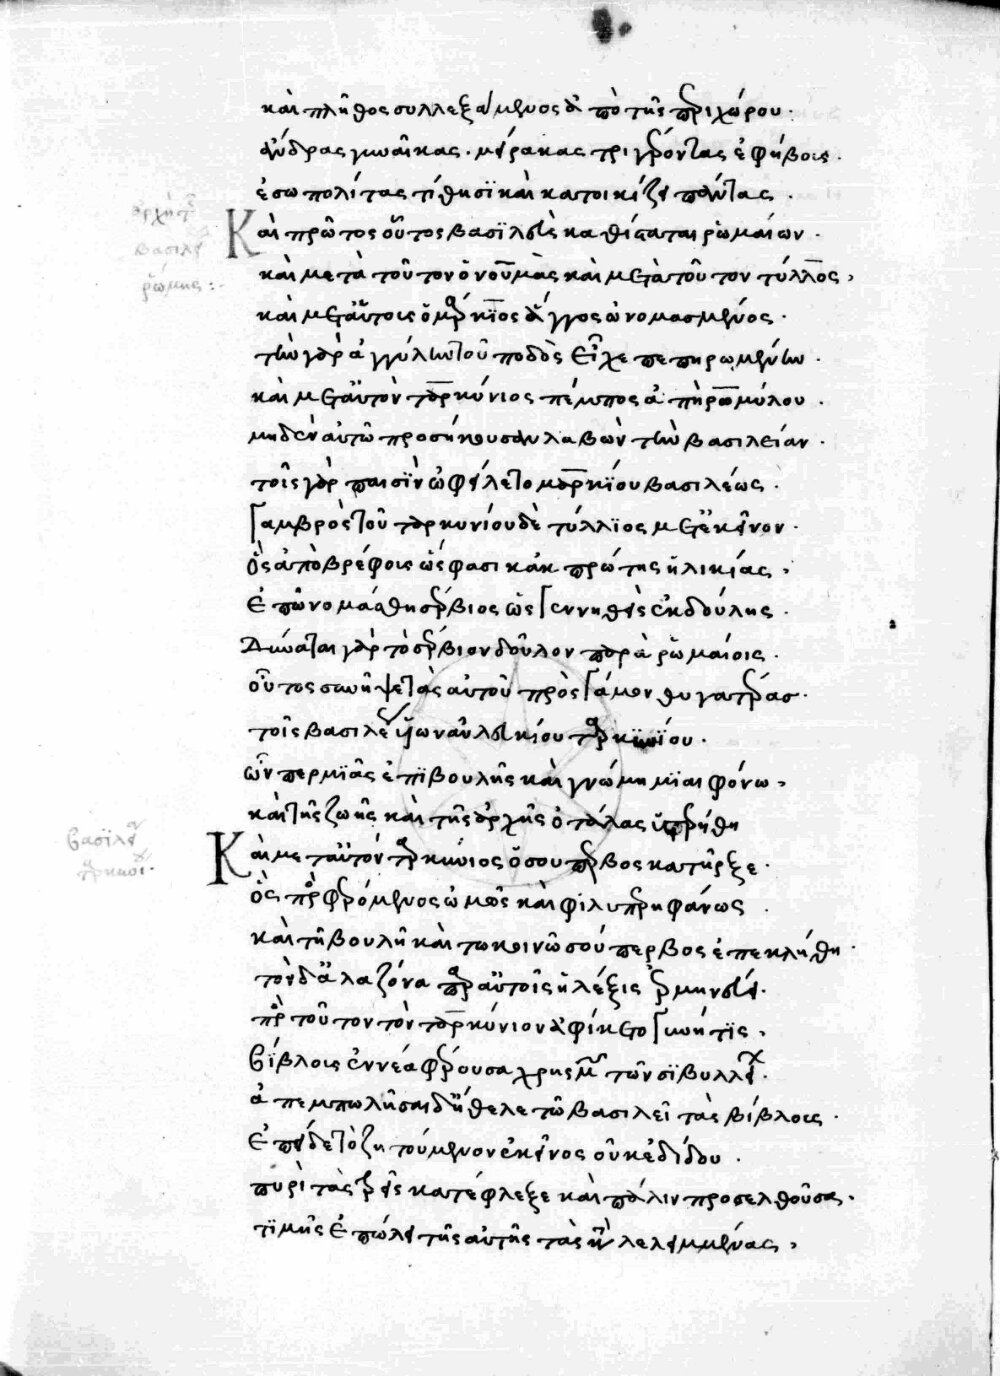 καὶ πλῆθος συλλεξάμενος ἀπὸ τῆς περιχώρου·
ἄνδρας γυναῖκας· μείρακας τριγέροντας ἐφήβους·
ἔσω πολίτας τίθησι καὶ κατοικίζει πάντας·
ἀρχὴ τῆς
Καὶ πρῶτος οὗτος βασιλεὺς καθίσταται ῥωμαίων·
βασιλεί
ῥώμης:-
καὶ μετὰ τοῦτον ὁ νουμᾶς καὶ μετὰ τοῦτον τύλλιος,
καὶ μετ' αὐτοὺς ὁ μάρκιος ἄγγος ὠνομασμένος·
τὴν γὰρ ἀγγύλην τοῦ ποδὸς εἶχε πεπηρωμένην·
καὶ μετ' αὐτὸν ταρκύνιος πέμπτος ἀπὸ ῥωμύλου·
μηδὲν αὐτῶ προσήκουσαν λαβὼν τὴν βασιλείαν·
τοῖς γὰρ παισὶν ὠφείλετο μαρκίου βασιλέως·
Γαμβρὸς τοῦ ταρκυνίου δὲ τύλλιος μετ' ἐκεῖνον·
ὃς ἀπὸ βρέφους ὥς φασι κἀκ πρώτης ἡλικίας,
ἐπωνομάσθη σέρβιος ὡς γεννηθεὶς ἐκ δούλης·
Δύναται γὰρ τὸ σέρβιον δοῦλον παρὰ ῥωμαίοις·
οὗτος συνῆψε τὰς αὐτοῦ πρὸς γάμον θυγατέρας·
τοῖς βασιλέως υἱῶν λευκίου ταρκυνίου·
ὧν περ μιᾶς ἐπιβουλῆς καὶ γνώμη μιαιφόνω,
καὶ τῆς ζωῆς καὶ τῆς ἀρχῆς ὁ τάλας ὑπεξήχθη
βασιλεία
Καὶ μετ' αὐτὸν ταρκύνιος ὁ σούπερβος κατῆρξε·
ταρκυνίου·
ὃς προσφερόμενος ὠμῶς καὶ φιλυπερηφάνως·
καὶ τῆ βουλῆ καὶ τῶ κοινῶ σούπερβος ἐπεκλήθη·
τὸν δ' ἀλαζόνα παρ' αὐτοῖς ἡ λέξις ἑρμηνεύει·
πρὸς τοῦτον τὸν ταρκύνιον ἀφίκετο γυνή τις,
βίβλους ἐννέα φέρουσα χρησμῶν τῶν σιβυλλείων·
ἀπεμπωλῆσαι δ' ἤθελε τῶ βασιλεῖ τὰς βίβλους·
ἐπεὶ δὲ τὸ ζητούμενον ἐκεῖνος οὐκ ἐδίδου·
πυρὶ τὰς τρεῖς κατέφλεξε καὶ πάλιν προσελθοῦσα·
τιμῆς ἐπώλει τῆς αὐτῆς τὰς λελειμμένας,